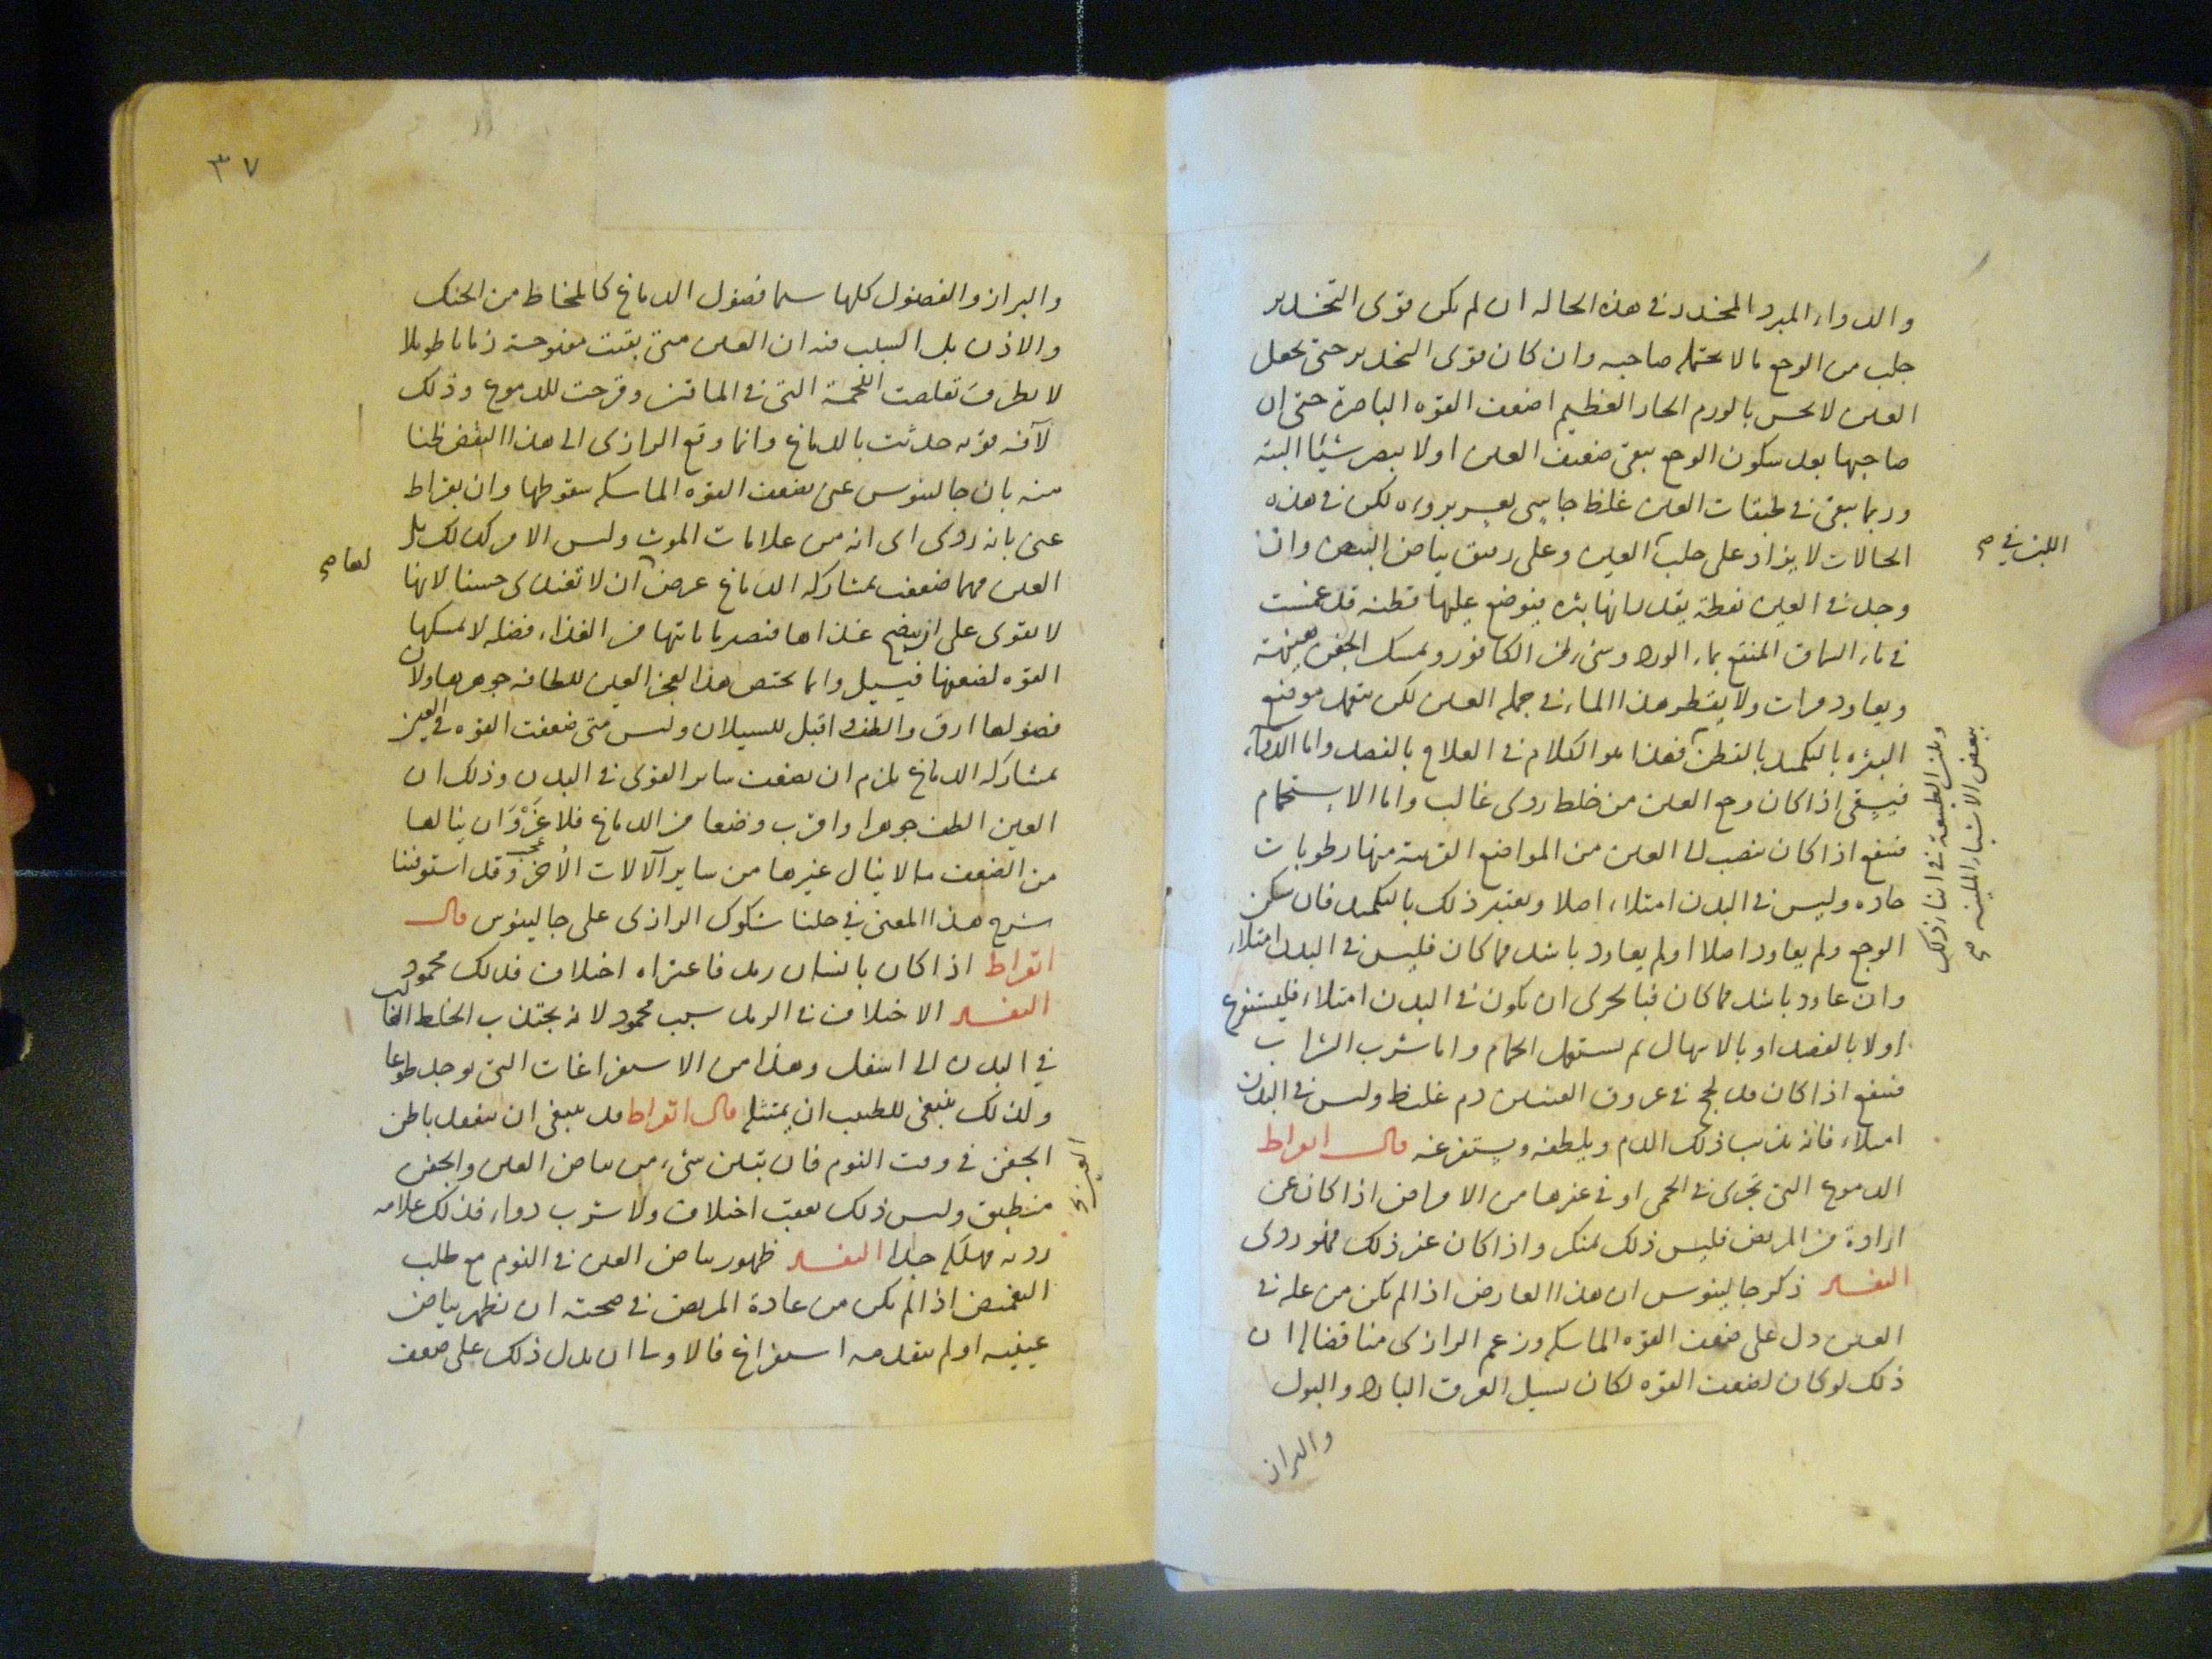 والدواء المبرد المخدر في هذه الحاله ان لم يكن قوى التخدير
جلب من الوجع ما لا يحتمله صاحبه وان كان قوى التخدير حتى يجعل
العين لا تحس بالورم الحار العظيم اضعف القوه الباصرة حتى ان
صاحبها بعد سكون الوجع يبقى ضعيف العين او لا يبصر شيئا البته
وربما يبقى في طبقات العين غلظ جاسى يعسر بروءه لكن في هذه
الحالات لا يزاد على حلب العين وعلى رقيق بياض البيض وان
اللبن في صح
وجد في العين نقطة يقدر انها بثره فيوضع عليها قطنه قد غمست
في ماء السماق المنقع بماء الورد وشئ من الكافور ويمسك الجفن هنيهة
ويعاود مرات ولا يقطر هذا الماء في جملة العين لكن يتعمد موضع
البثره بالتكميد بالقطن فهذا هو الكلام في العلاج بالفصد واما الدواء
وتلين الطبيعة في اثناء ذلك
ببعض الاشياء الملينه صح
فيسقى اذا كان وجع العين من خلط ردى غالب واما الاستحمام
فينفع اذا كان ينصب الى العين من المواضع القريبة منها رطوبات
حاده وليس في البدن امتلاء اصلا ويعتبر ذلك بالتكميد فان سكن
الوجع ولم يعاود اصلا او لم يعاود باشد مما كان فليس في البدن امتلاء
وان عاود باشد مما كان فبالحرى ان يكون في البدن امتلاء فليستفرغ
اولا بالفصد او بالاسهال ثم يستعمل الحمام واما شرب الشراب
فينفع اذا كان قد لحج في عروق العينين دم غليظ وليس في البدن
امتلاء فانه يذيب ذلك الدم ويلطفه ويستفرغه قال ابقراط
الدموع التي تجرى في الحمى او في غيرها من الامراض اذا كان عن
ارادة من المريض فليس ذلك بمنكر واذا كان عن غير ذلك فهو ردى
التفسير ذكر جالينوس ان هذا العارض اذا لم يكن من علة في
العين دل على ضعف القوه الماسكه وزعم الرازى مناقضا ان
ذلك لو كان لضعف القوه لكان يسيل العرق البارد والبول
والبراز
٣٧
والبراز والفضول كلها سيما فضول الدماغ كالمخاط من الحنك
والاذن بل السبب فيه ان العين متى بقيت مفتوحة زمانا طويلا
لا تطرف تقلصت اللحمة التي في الماقين وقرحت للدموع وذلك
لآفه قويه حدثت بالدماغ وانما وقع الرازى الى هذا النقض ظنا
منه بان جالينوس عنى بضعف القوه الماسكه سقوطها وان بقراط
عنى بانه ردى اى انه من علامات الموت وليس الامر كذلك بل
العين مهما ضعفت بمشاركه الدماغ عرض ان لا تغتذى حسنا لانها
لها صح
لا تقوى على ان ينضج غذاها فتصير ما ياتيها من الغذاء فضله لا تمسكها
القوه لضعفها فيسيل وانما يختص هذا العجز العين للطافه جوهرها ولان
فضولها ارق والطف واقبل للسيلان وليس متى ضعفت القوه في العين
بمشاركه الدماغ يلزم ان يضعف سائر القوى في البدن وذلك ان
العين الطف جوهرا واقرب وضعا من الدماغ فلا غَرْوَ ان ينالها
عجب
من الضعف ما لا ينال غيرها من ساير الآلات الأخر وقد استوفينا
شرح هذا المعنى في حلنا شكوك الرازى على جالينوس قال
ابقراط اذا كان بانسان رمد فاعتراه اختلاف فذلك محمود
التفسير الاختلاف في الرمد سبب محمود لانه يجتذب الخلط الغالب
في البدن الى اسفل وهذا من الاستفراغات التي توجد طوعا
ولذلك ينبغى للطبيب ان يمتثله قال ابقراط قد ينبغى ان يتفقد باطن
الجفن في وقت النوم فان يتبين شئ من بياض العين والجفن
العين صح
منطبق وليس ذلك بعقب اختلاف ولا شرب دواء فذلك علامه
رديه مهلكه جدا التفسير ظهور بياض العين في النوم مع طلب
التغميض اذا لم يكن من عادة المريض في صحته ان يظهر بياض
عينيه او لم يتقدمه استفراغ فالاولى ان يدل ذلك على ضعف